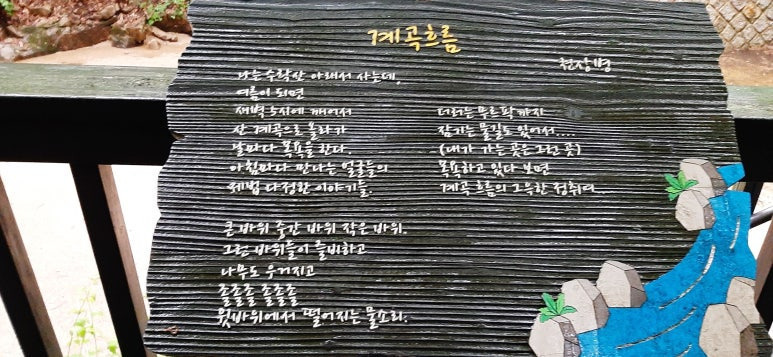 계곡흐름
천상병
나는 수락산 아래서 사는데,
여름이 되면
새벽 5시에 깨어서
산 계곡으로 올라가
날마다 목욕을 한다.
아침마다 만나는 얼굴들의
제법 다정한 이야기들.
큰 바위 중간 바위 작은 바위.
그런 바위들이 즐비하고
나무도 우거지고
졸졸졸 졸졸졸
윗바위에서 떨어지는 물소리.
더러는 무르팍까지
잠기는 물길도 있어서....
(내가 가는 곳은 그런 곳)
목욕하고 있다 보면
계곡 흐름의 그윽한 정취여...